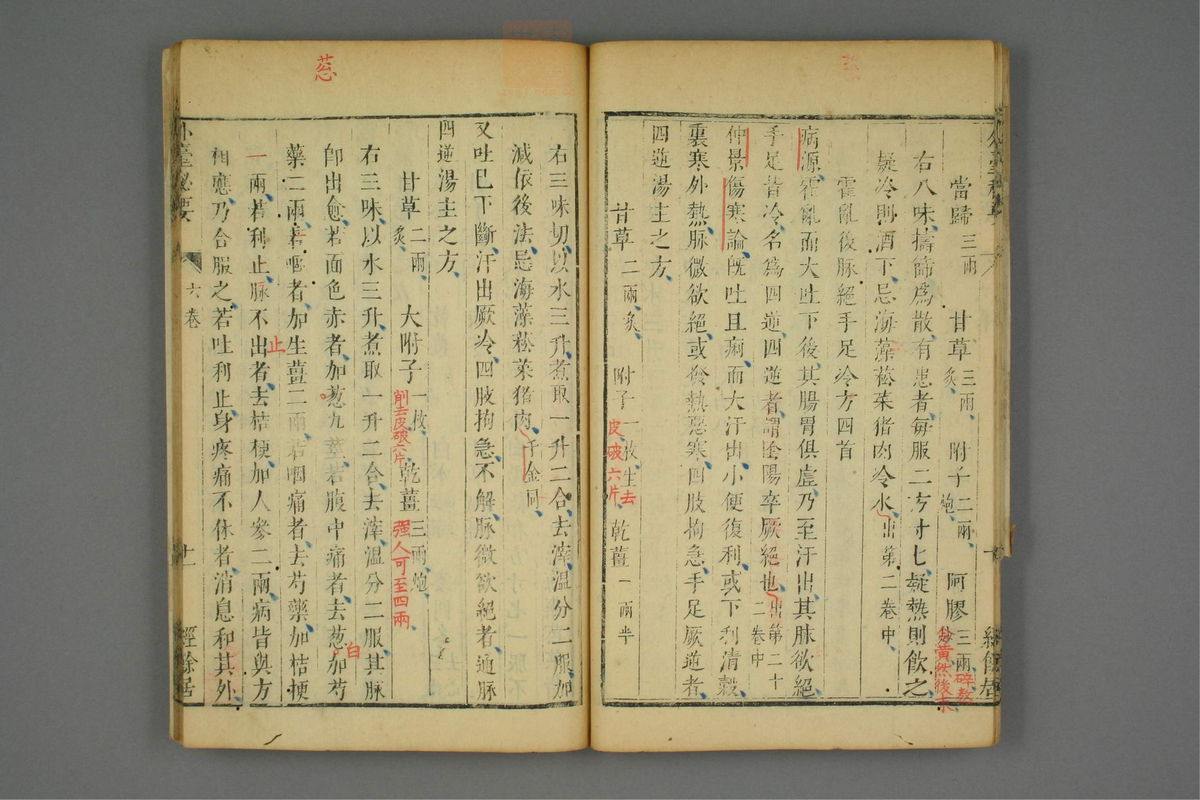 當歸三兩 甘草炙三兩 附子炮二兩 阿膠三兩碎熬
炒黃然後末
右八味擣篩爲散有患者每服二方寸匕疑熱則飲之
疑冷則酒下忌海藻菘菜猪肉冷水出第二卷中
霍亂後脉絕手足冷方四首
病源霍亂而大吐下後其腸胃俱虛乃至汗出其脉欲絕
手足皆冷名爲四逆四逆者謂陰陽卒厥絕也出第二十二卷中
仲景傷寒論旣吐且痢而大汗出小便復利或下利清穀
裏寒外熱脉微欲絕或發熱惡寒四肢拘急手足厥逆者
四逆湯主之方
甘草二兩炙 附子一枚生去皮破六片 乾薑一兩半
葱
右三味切以水三升煮取一升二合去滓温分二服加
減依後法忌海藻菘菜猪肉千金同
又吐巳下斷汗出厥冷四肢拘急不解脉微欲絕者通脉
四逆湯主之方
甘草二兩炙 大附子一枚削去皮破六片 乾薑三兩炮强人可至四兩
右三味以水三升煮取一升二合去滓温分二服其脉
卽出愈若面色赤者加葱九莖若腹中痛者去葱白加芍
藥二兩若嘔者加生薑二兩若咽痛者去芍藥加桔梗
一兩若利止脉不出者去桔梗加人參二兩病皆與方
止
相應乃合服之若吐利止身疼痛不休者消息和其外
外臺秘要 六卷 十一 經餘居